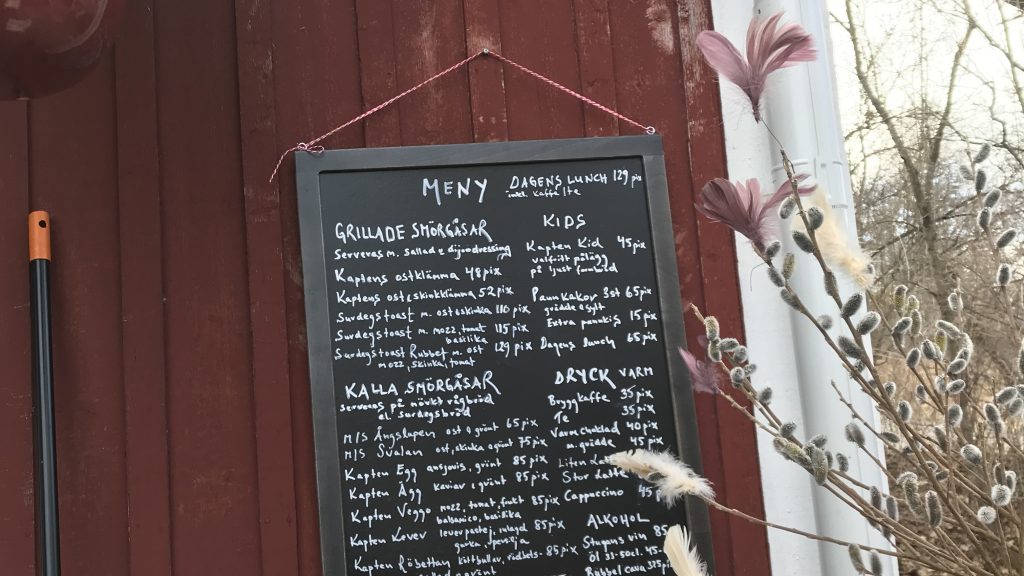 MENY
DAGENS LUNCH 129 pix
inkl. kaffe/te
GRILLADE SMÖRGÅSAR
Serveras m. sallad & dijondressing
Kaptens ostklämma 48 pix
Kaptens ost & skinkklämma 52 pix
Surdegstoast m. ost & skinka 110 pix
Surdegstoast m. mozz, tomat 115 pix
basilika
Surdegstoast Rubbet m. ost 129 pix
mozz, skinka, tomat
KALLA SMÖRGÅSAR
serveras på mörkt rågbröd
el. surdegsbröd
M/S Ängslupen ost & grönt 65 pix
M/S Svalan ost, skinka & grönt 75 pix
Kapten Egg ansjovis, grönt 85 pix
Kapten Ägg kaviar & grönt 85 pix
Kapten Veggo mozz, tomat 85 pix
balsamico, basilika
Kapten Korev leverpastej 85 pix
gurka
Kapten köttbullar, rödbets- 85 pix
KIDS
Kapten Kid 45 pix
valfritt pålägg
på ljust
Pannkakor 3st 65 pix
grädde & sylt
Extra pannkaka 15 pix
Dagens lunch 65 pix
DRYCK VARM
Bryggkaffe 35 pix
Te 35 pix
Varm choklad 40 pix
m. grädde 45 pix
Liten
Stor
Cappuccino 45
ALKOHOL
Stugans vin 85
öl 33-50cl. 45
Rubbel Cava 325